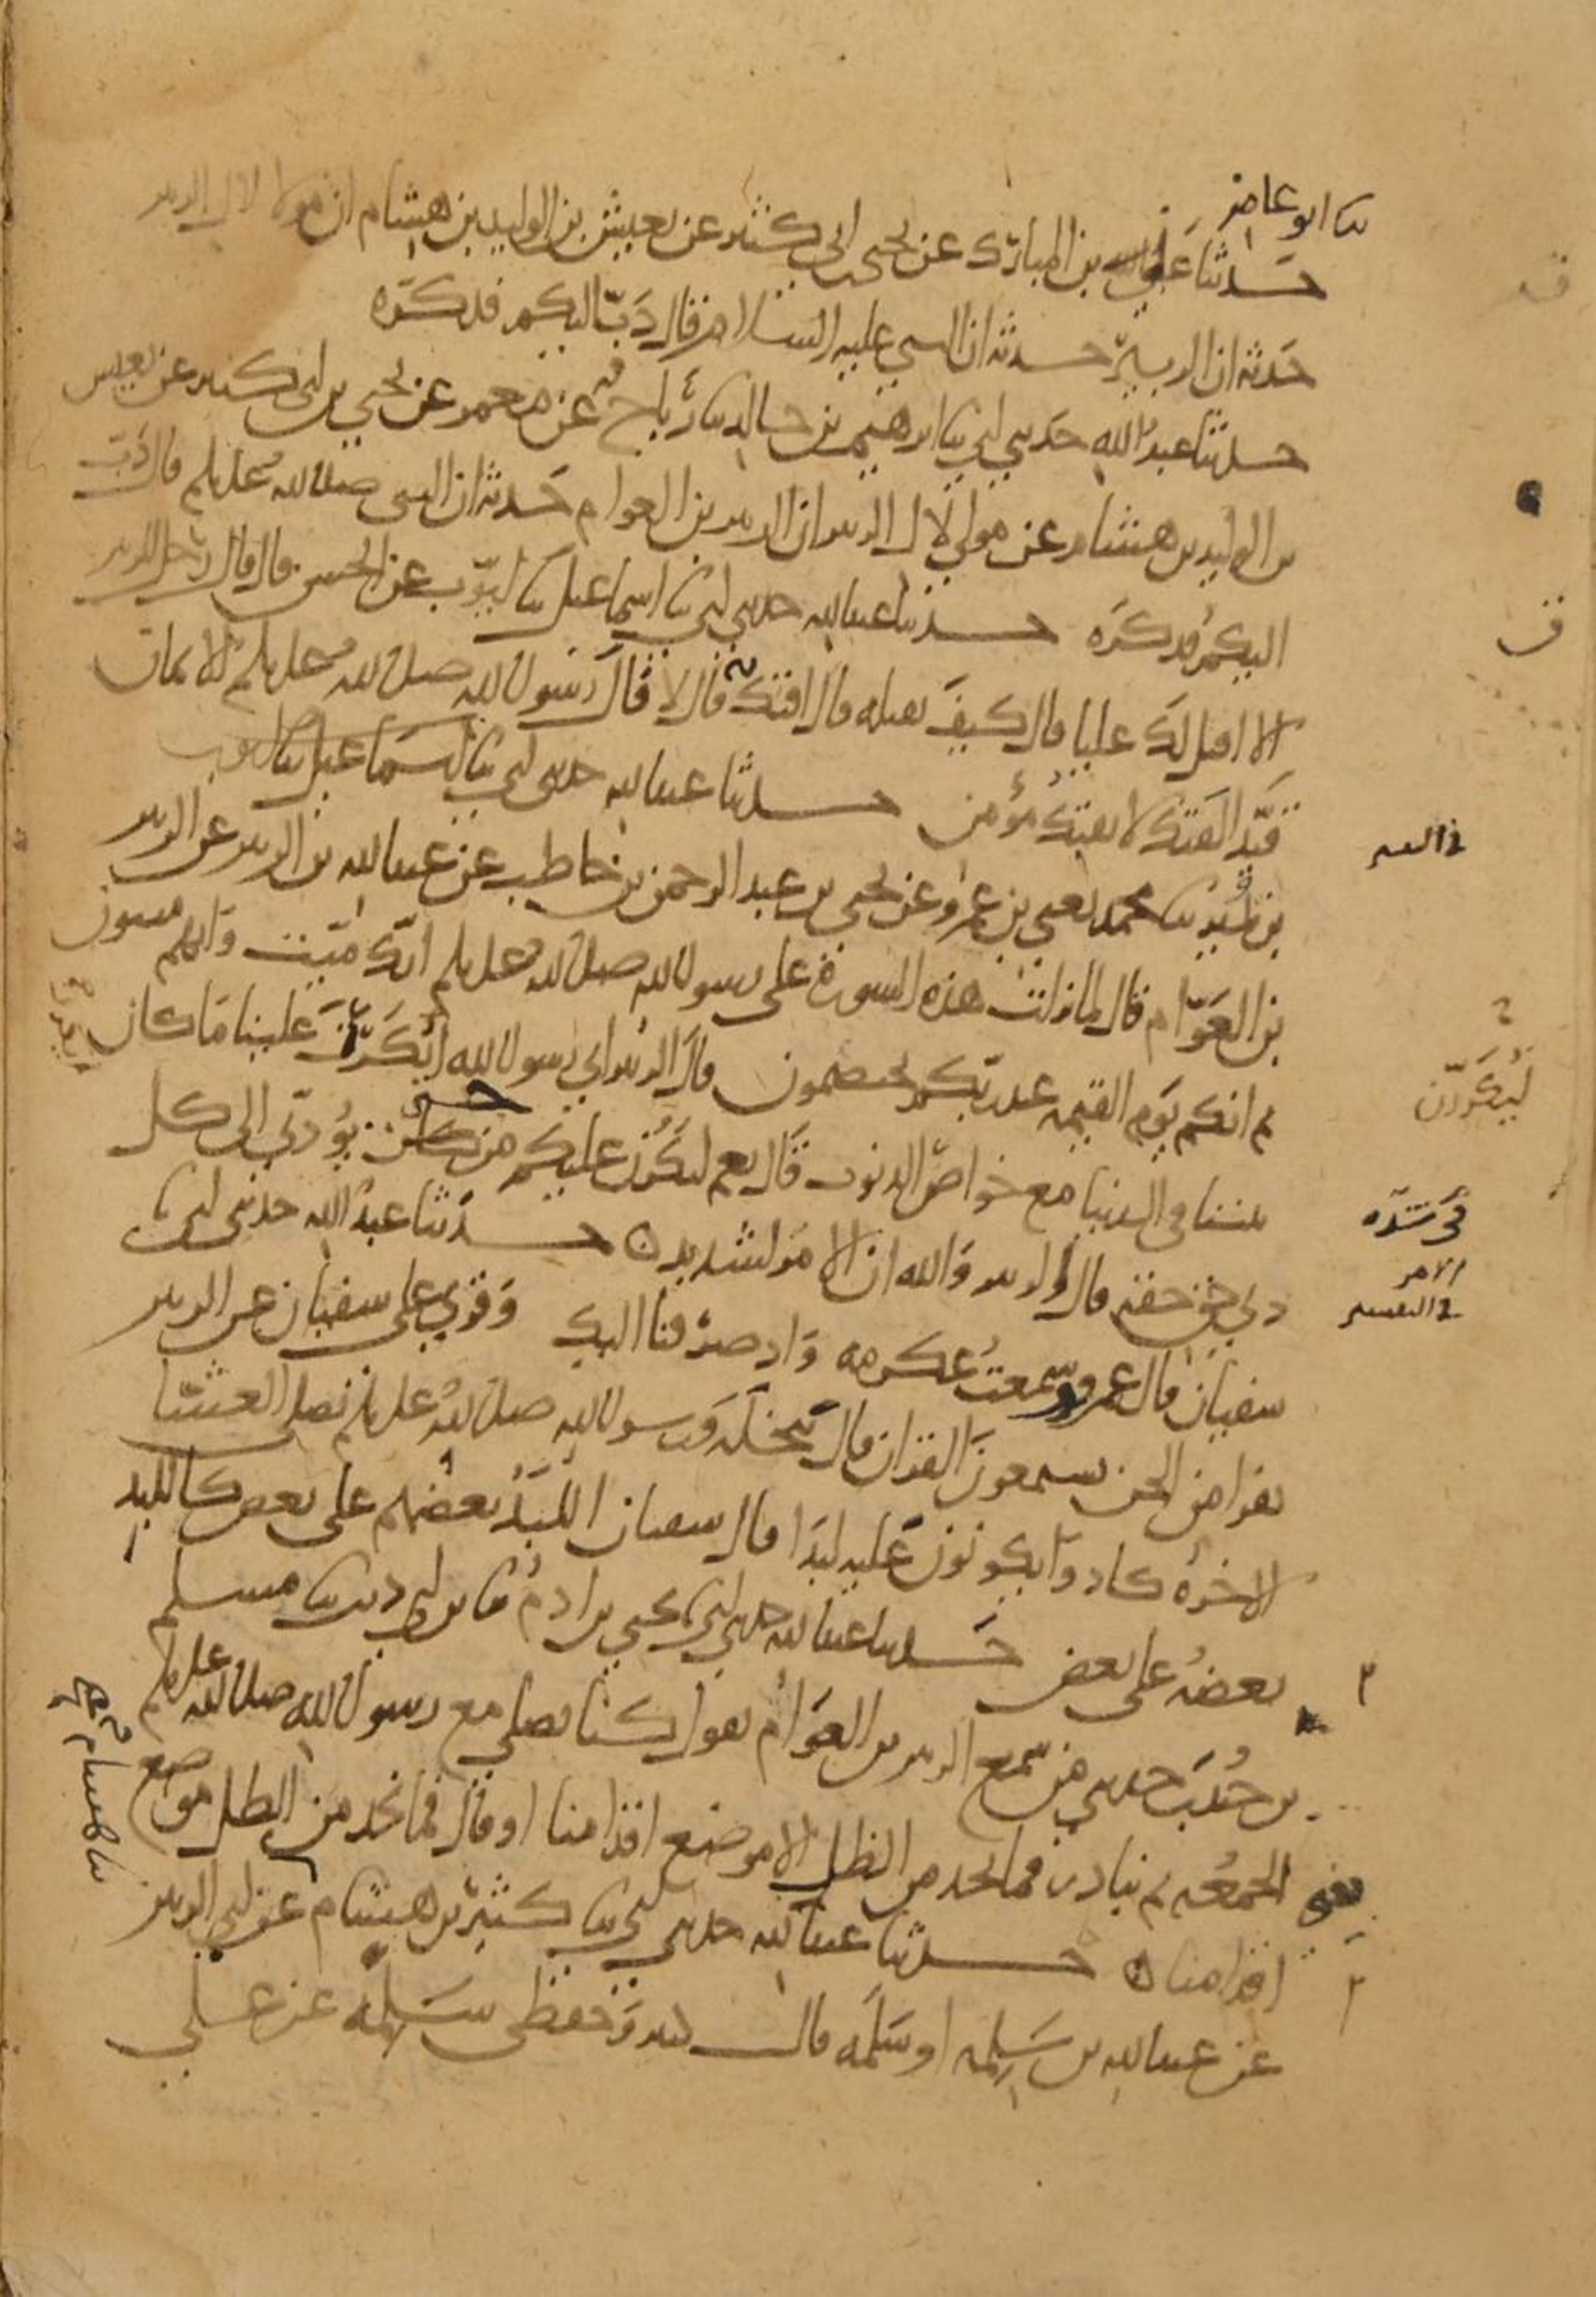 ثنا ابو عامر
حدثنا علي بن المبارك عن يحيى بن ابي كثير عن يعيش بن الوليد بن هشام ان مولى لال الزبير
حدثه ان الزبير حدثه ان النبي عليه السلام قال دَبّ اليكم فذكره
حدثنا عبد الله حدثني ابي ثنا ابرهيم بن خالد ثنا رباح عن معمر عن يحيى بن ابي كثير عن يعيش
بن الوليد بن هشام عن مولى لال الزبير ان الزبير بن العوام حدثه ان النبي صلى الله عليه وسلم قال دَبّ
اليكم فذكره حدثنا عبد الله حدثني ابي ثنا اسماعيل ثنا ايوب عن الحسن قال قال رجل للزبير
الا اقتل لك عليا قال كيف تقتله قال افتك به قال لا قال رسول الله صلى الله عليه وسلم الايمان
قيّد الفتك لا يفتك مؤمن حدثنا عبد الله حدثني ابي ثنا اسماعيل ثنا ايوب
بن نمير ثنا محمد يعني بن عمرو عن يحيى بن عبد الرحمن بن حاطب عن عبد الله بن الزبير عن الزبير
بن العوّام قال لما نزلت هذه السورة على رسول الله صلى الله عليه وسلم انك ميت وانهم ميتون
ثم انكم يوم القيمه عند ربكم تختصمون قال الزبير اي رسول الله ايُكرّرنّ علينا ما كان
بيننا في الدنيا مع خواص الذنوب قال نعم ليكررن عليكم حتى يؤدّى الى كل
ذي حق حقه قال الزبير والله ان الامر لشديد حدثنا عبد الله حدثني ابي ثنا
سفيان قال عمرو وسمعت عكرمه واذ صرفنا اليك وقري على سفيان عن الزبير
نفرا من الجن يستمعون القران قال بنخلة ورسول الله صلى الله عليه وسلم يصلي العشا
الاخره كادوا يكونون عليه لبدا قال سفيان اللبد بعضهم على بعض كاللبد
بعضه على بعض حدثنا عبد الله حدثني ابي ثنا يحيى بن ادم ثنا بن ابي ذيب ثنا مسلم
بن جُندب حدثني من سمع الزبير بن العوام يقول كنا نصلي مع رسول الله صلى الله عليه وسلم
الجمعه ثم نبادر فما نجد من الظل الا موضع اقدامنا او قال فما نجد من الظل موضع
اقدامنا حدثنا عبد الله حدثني ابي ثنا كثير بن هشام عن ابي الزبير
عن عبد الله بن سَلِمه او سَلَمه قال كثير وحفظي سَلِمه عن علي
ف
ليُكرّرنّ
في شدّه
الامر
في التفسير
ثنا هشام